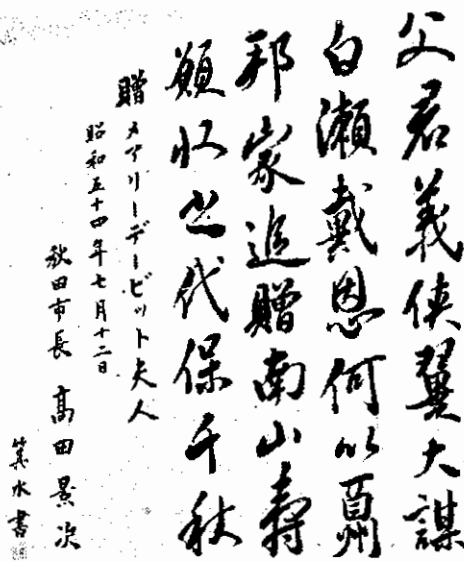 父君義侠翼大謀
白瀬戴恩何以酬
邦家追贈南山寿
願収代保千秋
贈 メアリーデービット夫人
昭和五十四年七月十二日
秋田市長 高田景次
水書